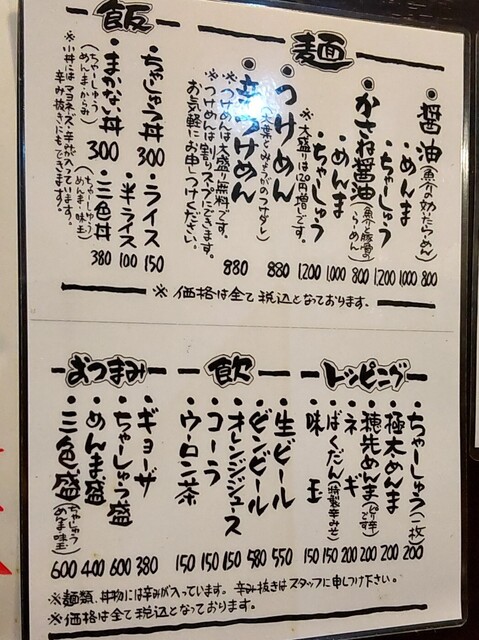 麺
・醤油(魚介の効いたらーめん) 800
・めんま 1000
・ちゃーしゅう 1200
・かさね醤油(魚介と豚骨のらーめん) 800
・めんま 1000
・ちゃーしゅう 1200
※大盛りは120円増しです。
・つけめん 880
大葉とみょうがのつけダレ
・辛つけめん 880
※つけめんは大盛り無料です。
※つけめんは割りスープにできます。
お気軽にお申しつけください。
飯
・ちゃーしゅう丼 300
・まかない丼 300
(ちゃーしゅうめんまからみ)
※小丼にはマヨネーズ・辛みが入っています。
辛み抜きにもできます。
・ライス 150
・半ライス 100
・三色丼 380
(ちゃーしゅうめんま・味玉)
※価格は全て税込となっております。
トッピング
・ちゃーしゅう(一枚) 200
・極太めんま 200
・穂先めんま(ピリ辛です) 200
・ネギ 200
・ばくだん(特製辛みそ) 150
・味玉 150
飲
・生ビール 550
・ビンビール 580
・オレンジジュース 150
・コーラ 150
・ウーロン茶 150
おつまみ
・ギョーザ 380
・ちゃーしゅう盛 600
・めんま盛 400
・三色盛(ちゃーしゅうめんま味玉) 600
※麺類、丼物には辛みが入っています。辛み抜きはスタッフに申しつけ下さい。
※価格は全て税込となっております。